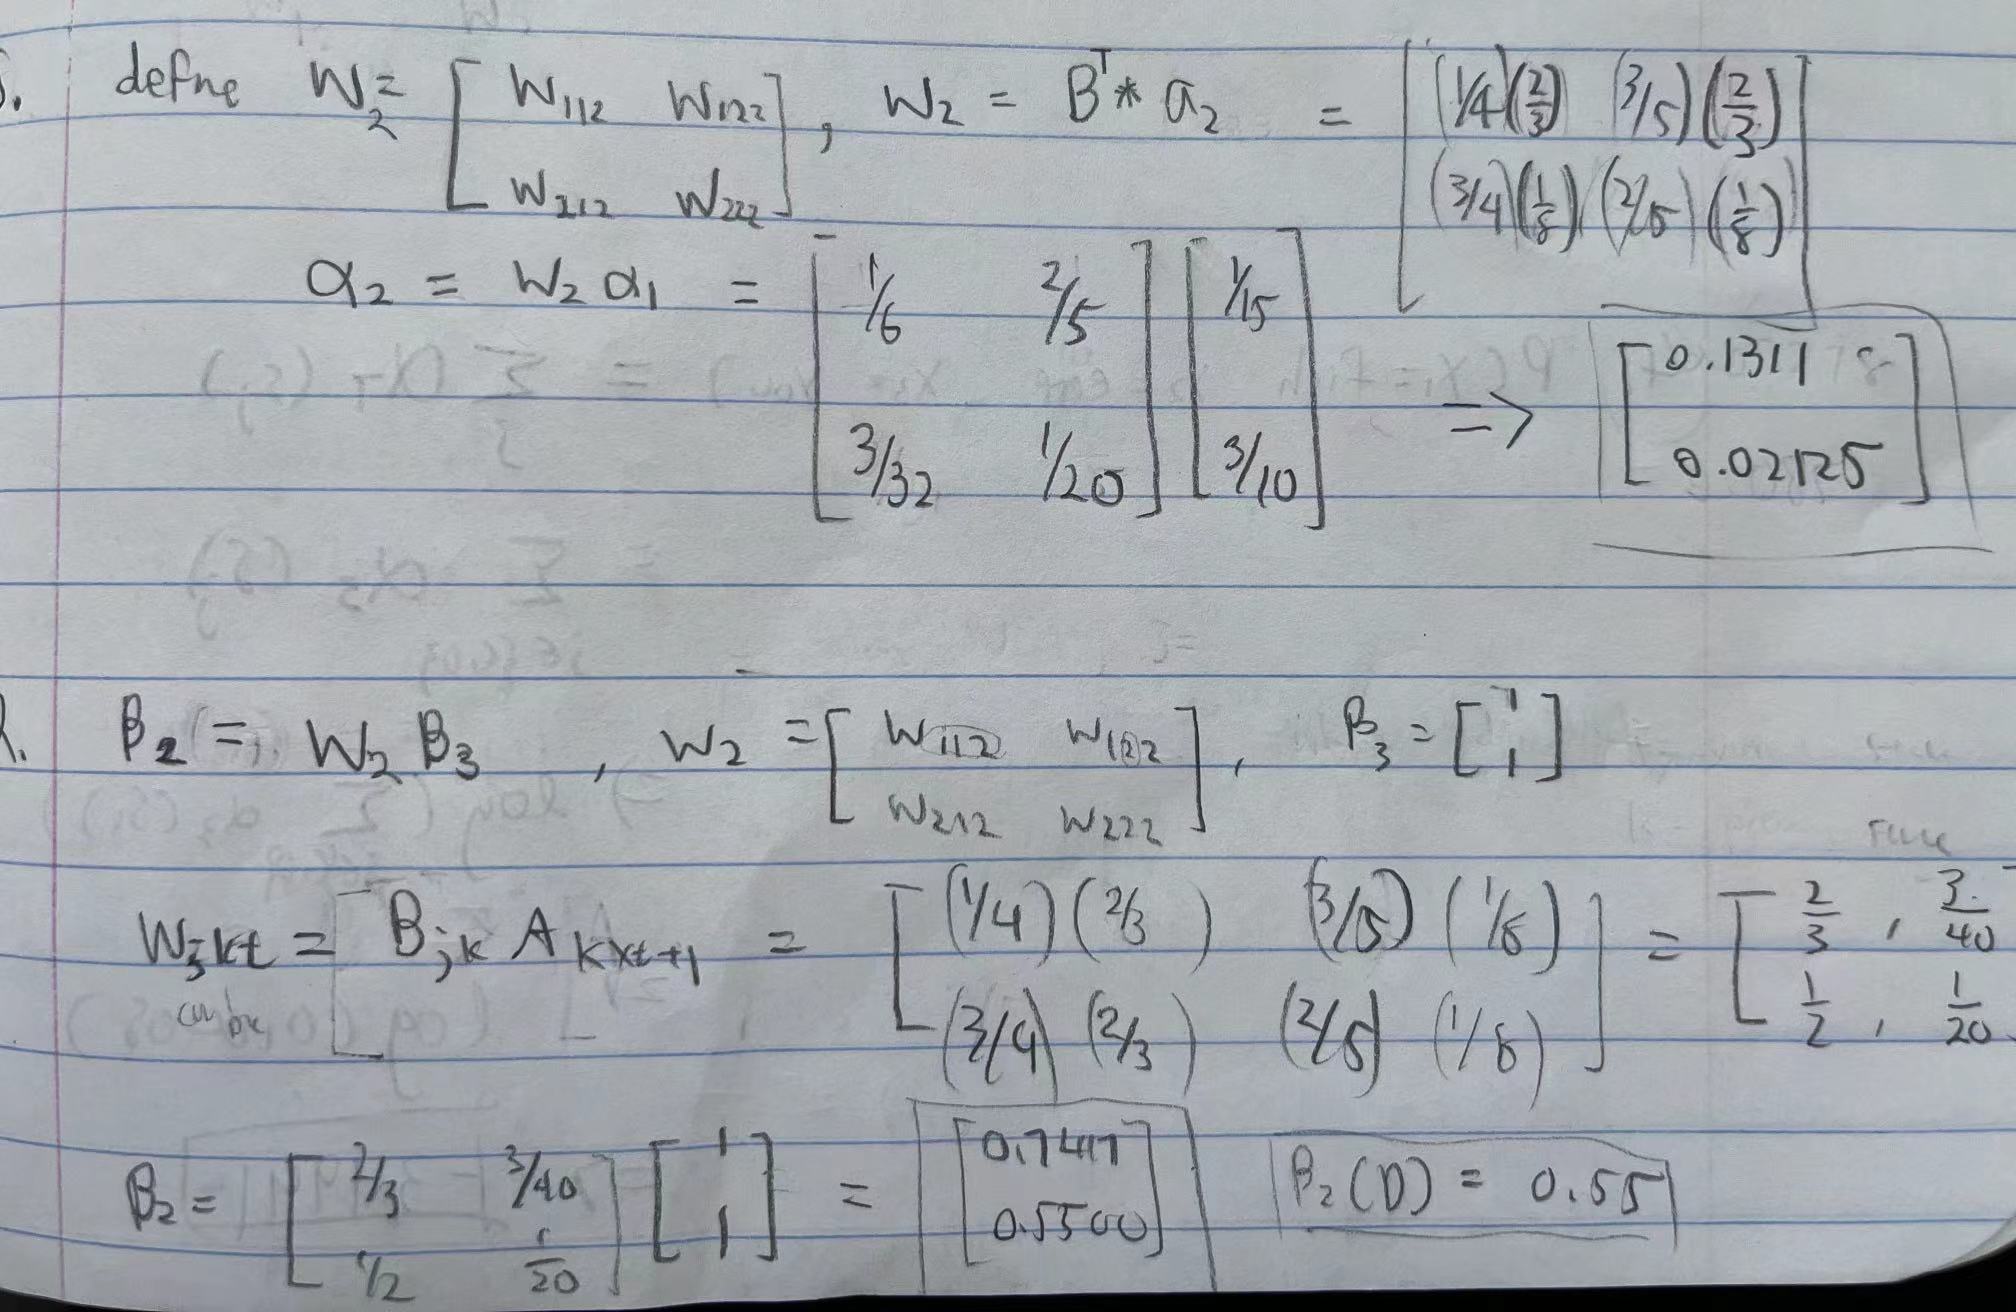 define W₂ = [ W₁₁₂ W₁₂₂ ; W₂₁₂ W₂₂₂ ], W₂ = Bᵀ * a₂ = [ (1/4)(2/3) (3/5)(2/3) ; (3/4)(1/8) (2/5)(1/8) ]
α₂ = W₂ α₁ = [ 1/6 2/5 ; 3/32 1/20 ] [ 1/15 ; 3/10 ] => [ 0.1311 ; 0.02125 ]
β₂ = W₂ β₃, W₂ = [ W₁₁₂ W₁₂₂ ; W₂₁₂ W₂₂₂ ], β₃ = [ 1 ; 1 ]
Wjkt = [ Bjk A kxt+1 = [ (1/4)(2/3) (3/5)(1/8) ; (3/4)(2/3) (2/5)(1/8) ] = [ 2/3, 3/40 ; 1/2, 1/20
β₂ = [ 2/3 3/40 ; 1/2 1/20 ] [ 1 ; 1 ] = [ 0.7417 ; 0.5500 ] β₂(D) = 0.55